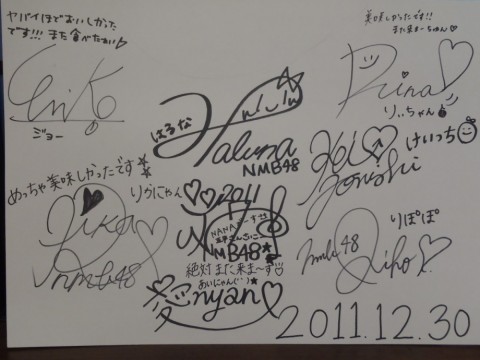 ヤバイほどおいしかった
です!!! また食べたい♡
ジョー
めっちゃ美味しかったです
Rika
nmb48
りかにゃん♡♡
はるな
Haluna
NMB48
2011
NMB48★
絶対また来ま〜す
あいにゃん
愛nyan♡
美味しかったです!!
また来まーちゅん♡
Riina♡
りぃちゃん
けいっち
りぽぽ
nmb48
Riho♡
2011.12.30